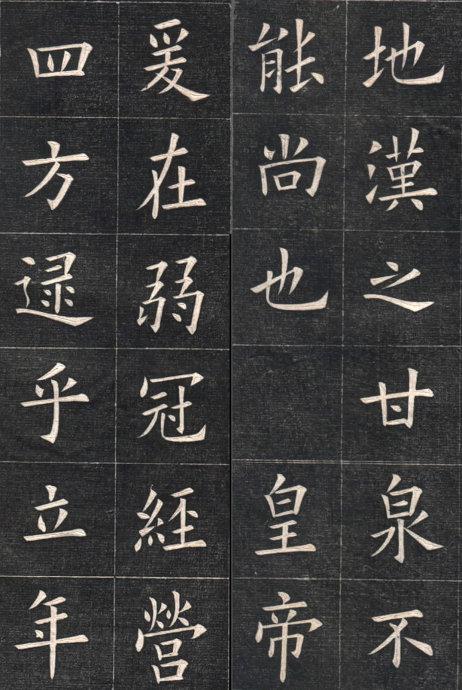 地漢之甘泉不
能尚也　皇帝
爰在弱冠經營
四方逯乎立年